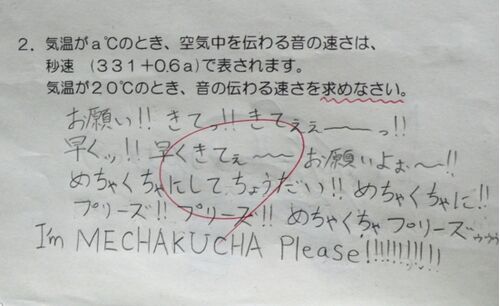 2. 気温がa℃のとき、空気中を伝わる音の速さは、
秒速 (331+0.6a)で表されます。
気温が20℃のとき、音の伝わる速さを求めなさい。
お願い!! きてっ!! きてぇぇ〜〜っ!!
早くッ!! 早くきてぇ〜〜 お願いよぉ〜!!
めちゃくちゃにしてちょうだい!! めちゃくちゃに!!
プリーズ!! プリーズ!! めちゃくちゃプリーズゥゥゥ
I'm MECHAKUCHA Please!!!!!!!!!!